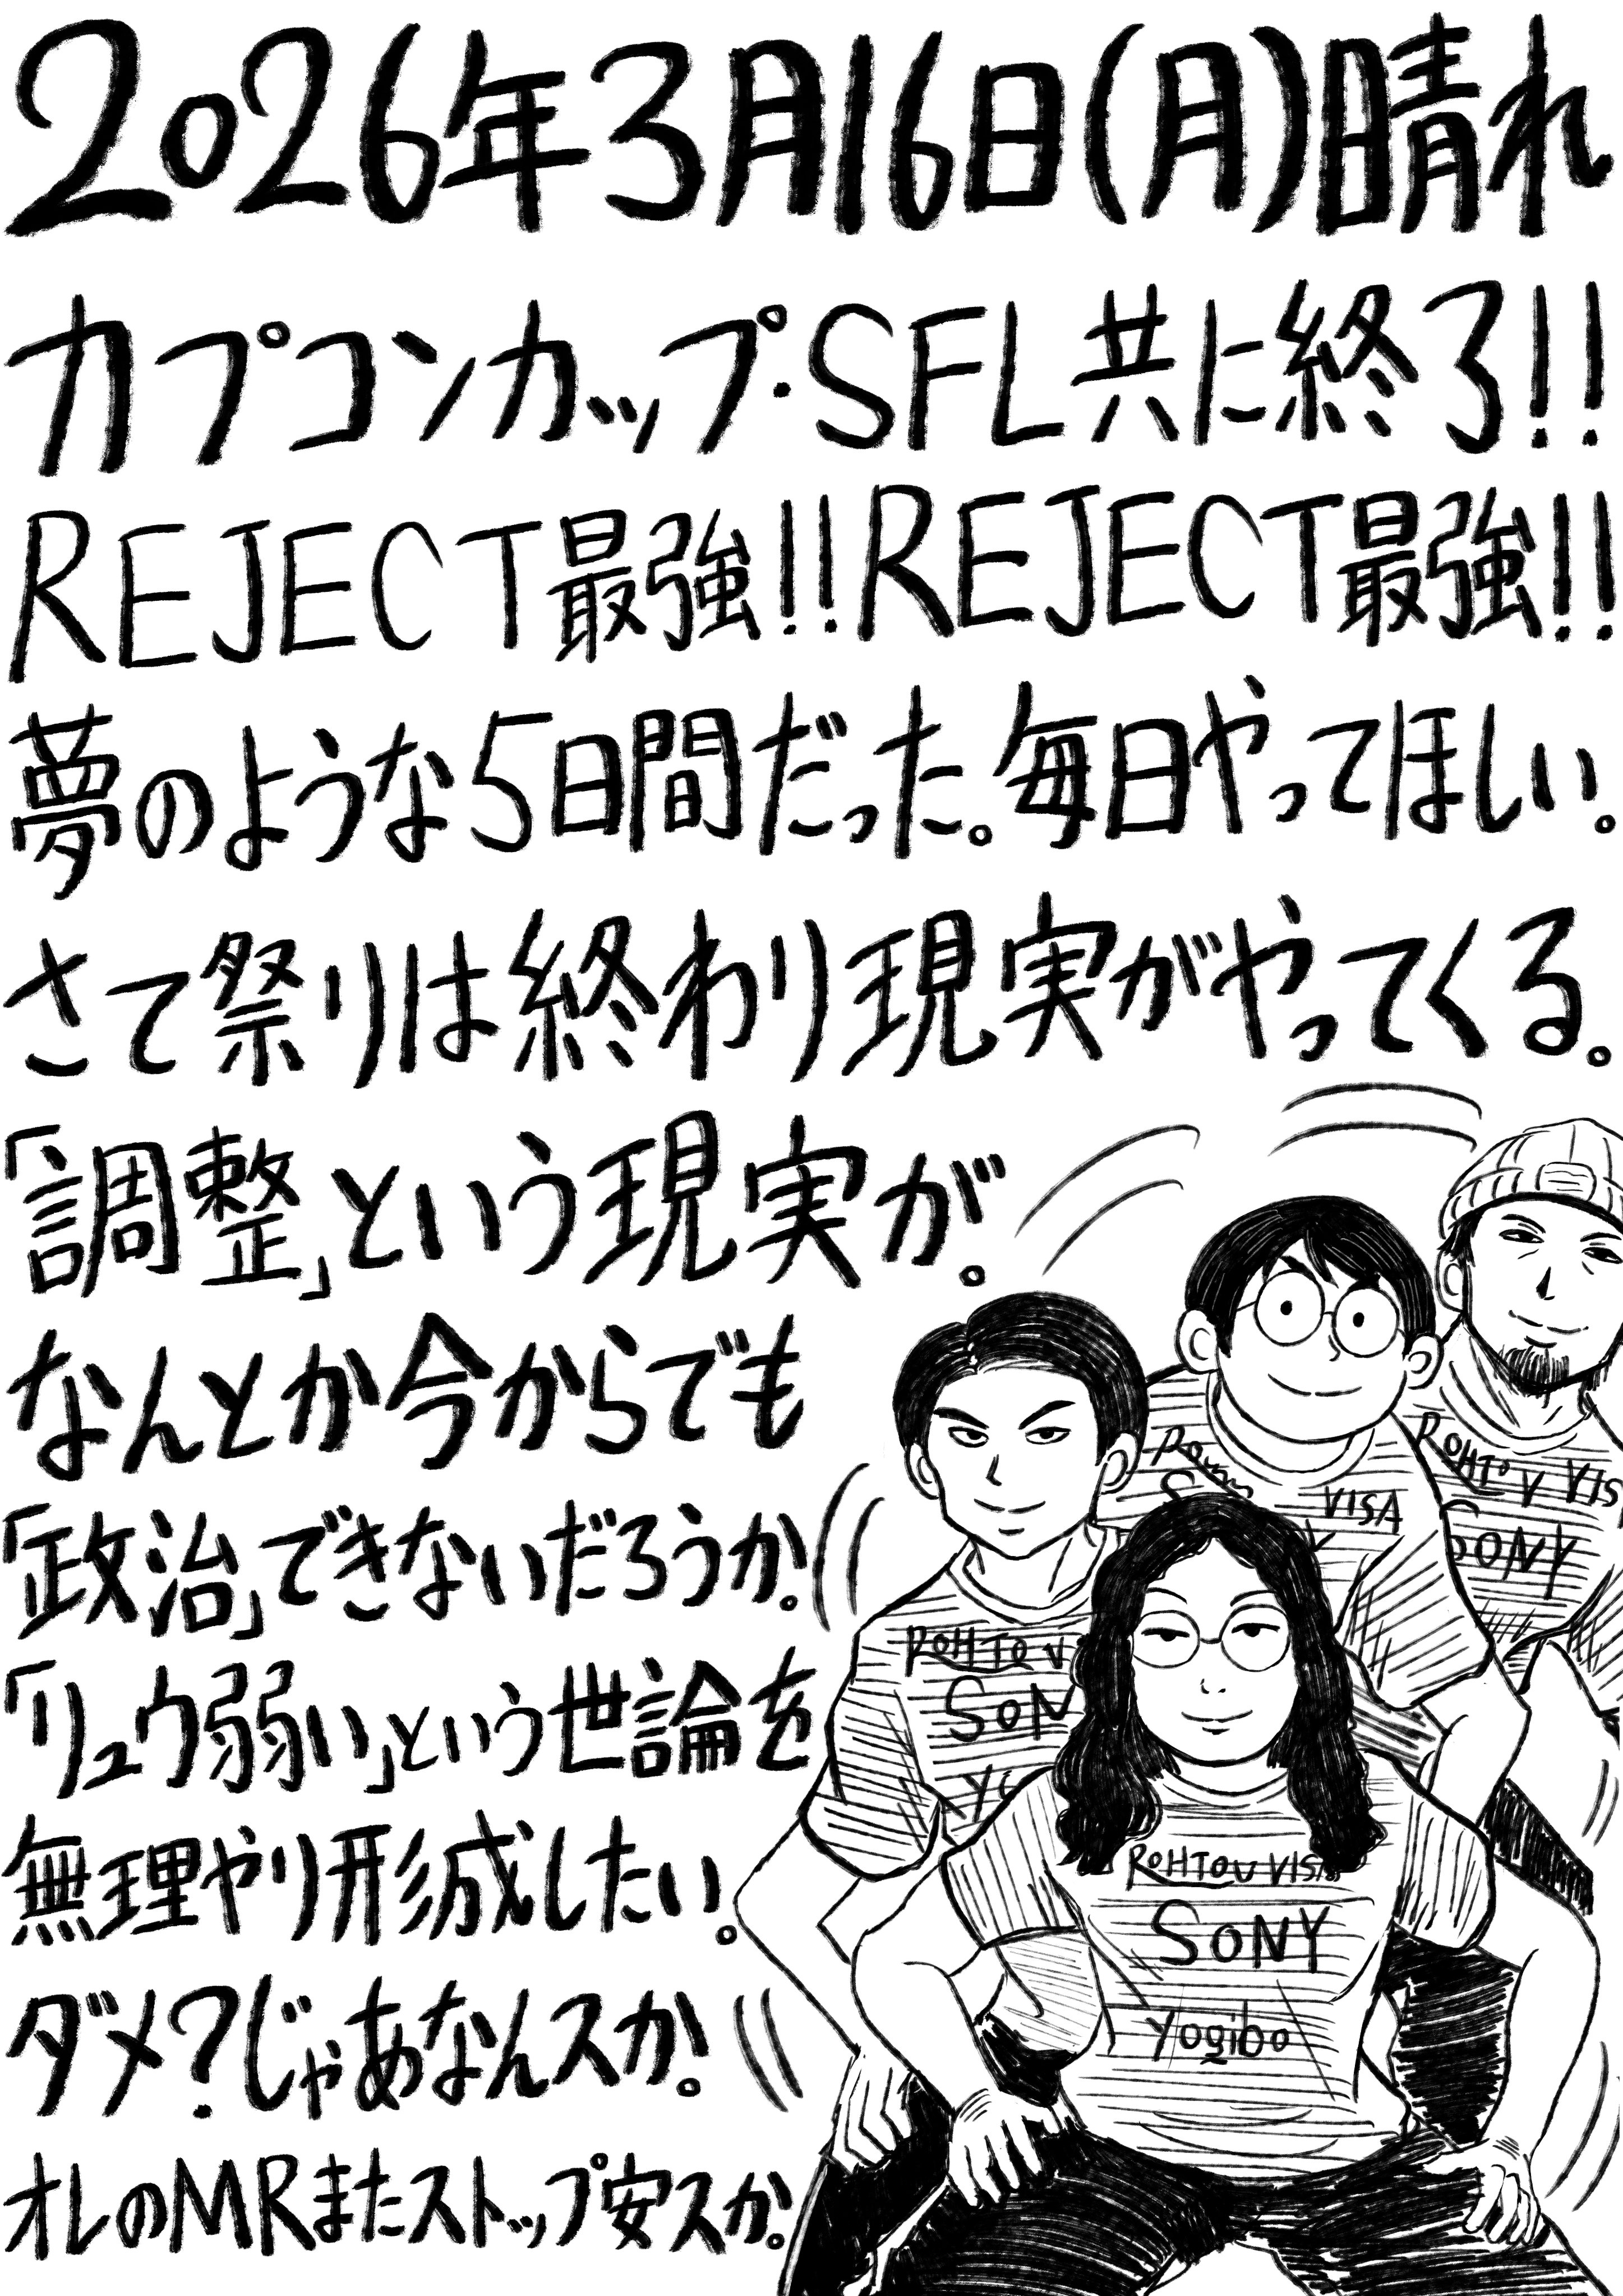 2026年3月16日(月)晴れ
カプコンカップ・SFL共に終了!!
REJECT最強!!REJECT最強!!
夢のような5日間だった。毎日やってほしい。
さて祭りは終わり現実がやってくる。
「調整」という現実が。
なんとか今からでも
「政治」できないだろうか。
「リュウ弱い」という世論を
無理やり形成したい。
ダメ?じゃあなんスか。
オレのMRまたストップ安スか。
VISA
ROHTO V VIS
SONY
ROHTO V
SON
ROHTO V VISA
SONY
yogibo